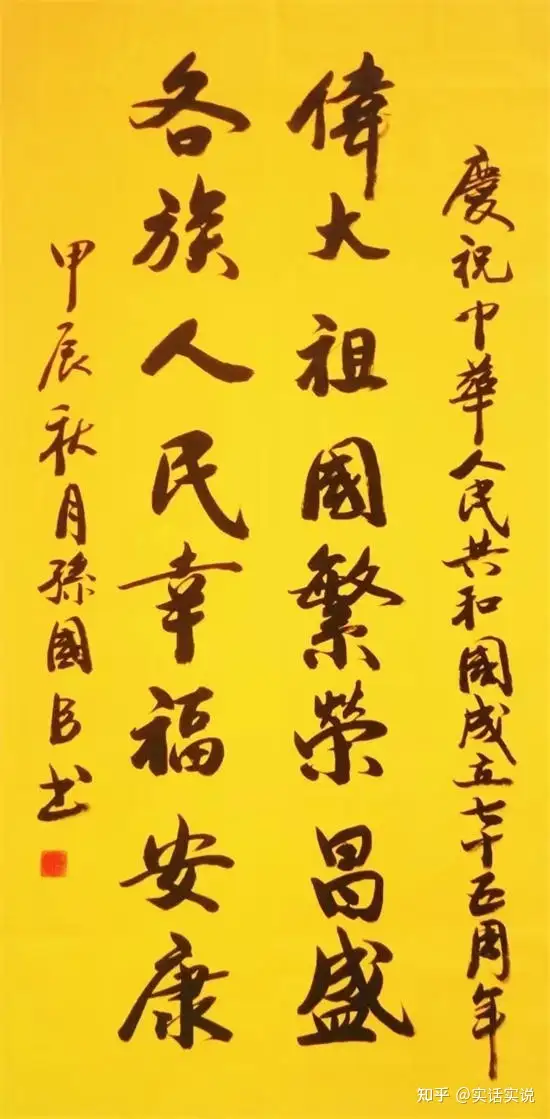 慶祝中華人民共和國成立七十五周年
偉大祖國繁榮昌盛
各族人民幸福安康
甲辰秋月孫國吕书
知乎 @实话实说